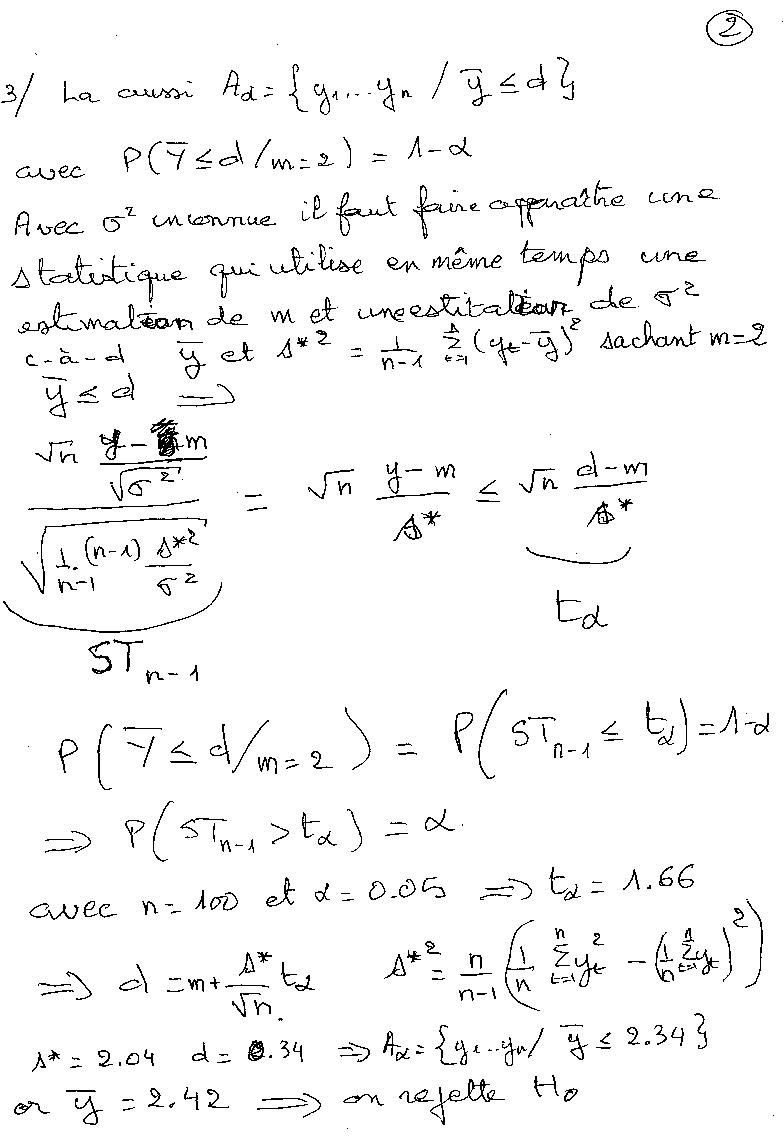 2
3/ La aussi Aα = { y1...yn / ȳ ≤ d }
avec P(Ȳ ≤ d / m = 2) = 1-α
Avec σ² inconnue il faut faire apparaître une
statistique qui utilise en même temps une
estimation de m et une estitation de σ²
c-à-d ȳ et s*² = 1/(n-1) Σ_{t=1}^{n} (yt - ȳ)² sachant m=2
ȳ ≤ d ⟹
(√n (y - m)/√σ²) / √(1/(n-1) · (n-1) s*²/σ²) = √n (y - m)/s* ≤ √n (d - m)/s*
tα
ST n-1
P( Ȳ ≤ d / m = 2 ) = P( ST n-1 ≤ tα ) = 1-α
⟹ P( ST n-1 > tα ) = α.
avec n = 100 et α = 0.05 ⟹ tα = 1.66
⟹ d = m + s*/√n. tα s*² = n/(n-1) ( 1/n Σ_{t=1}^{n} yt² - ( 1/n Σ_{t=1}^{n} yt )² )
s* = 2.04 d = 0.34 ⟹ Aα = { y1..yn / ȳ ≤ 2.34 }
or ȳ = 2.42 ⟹ on rejette H0